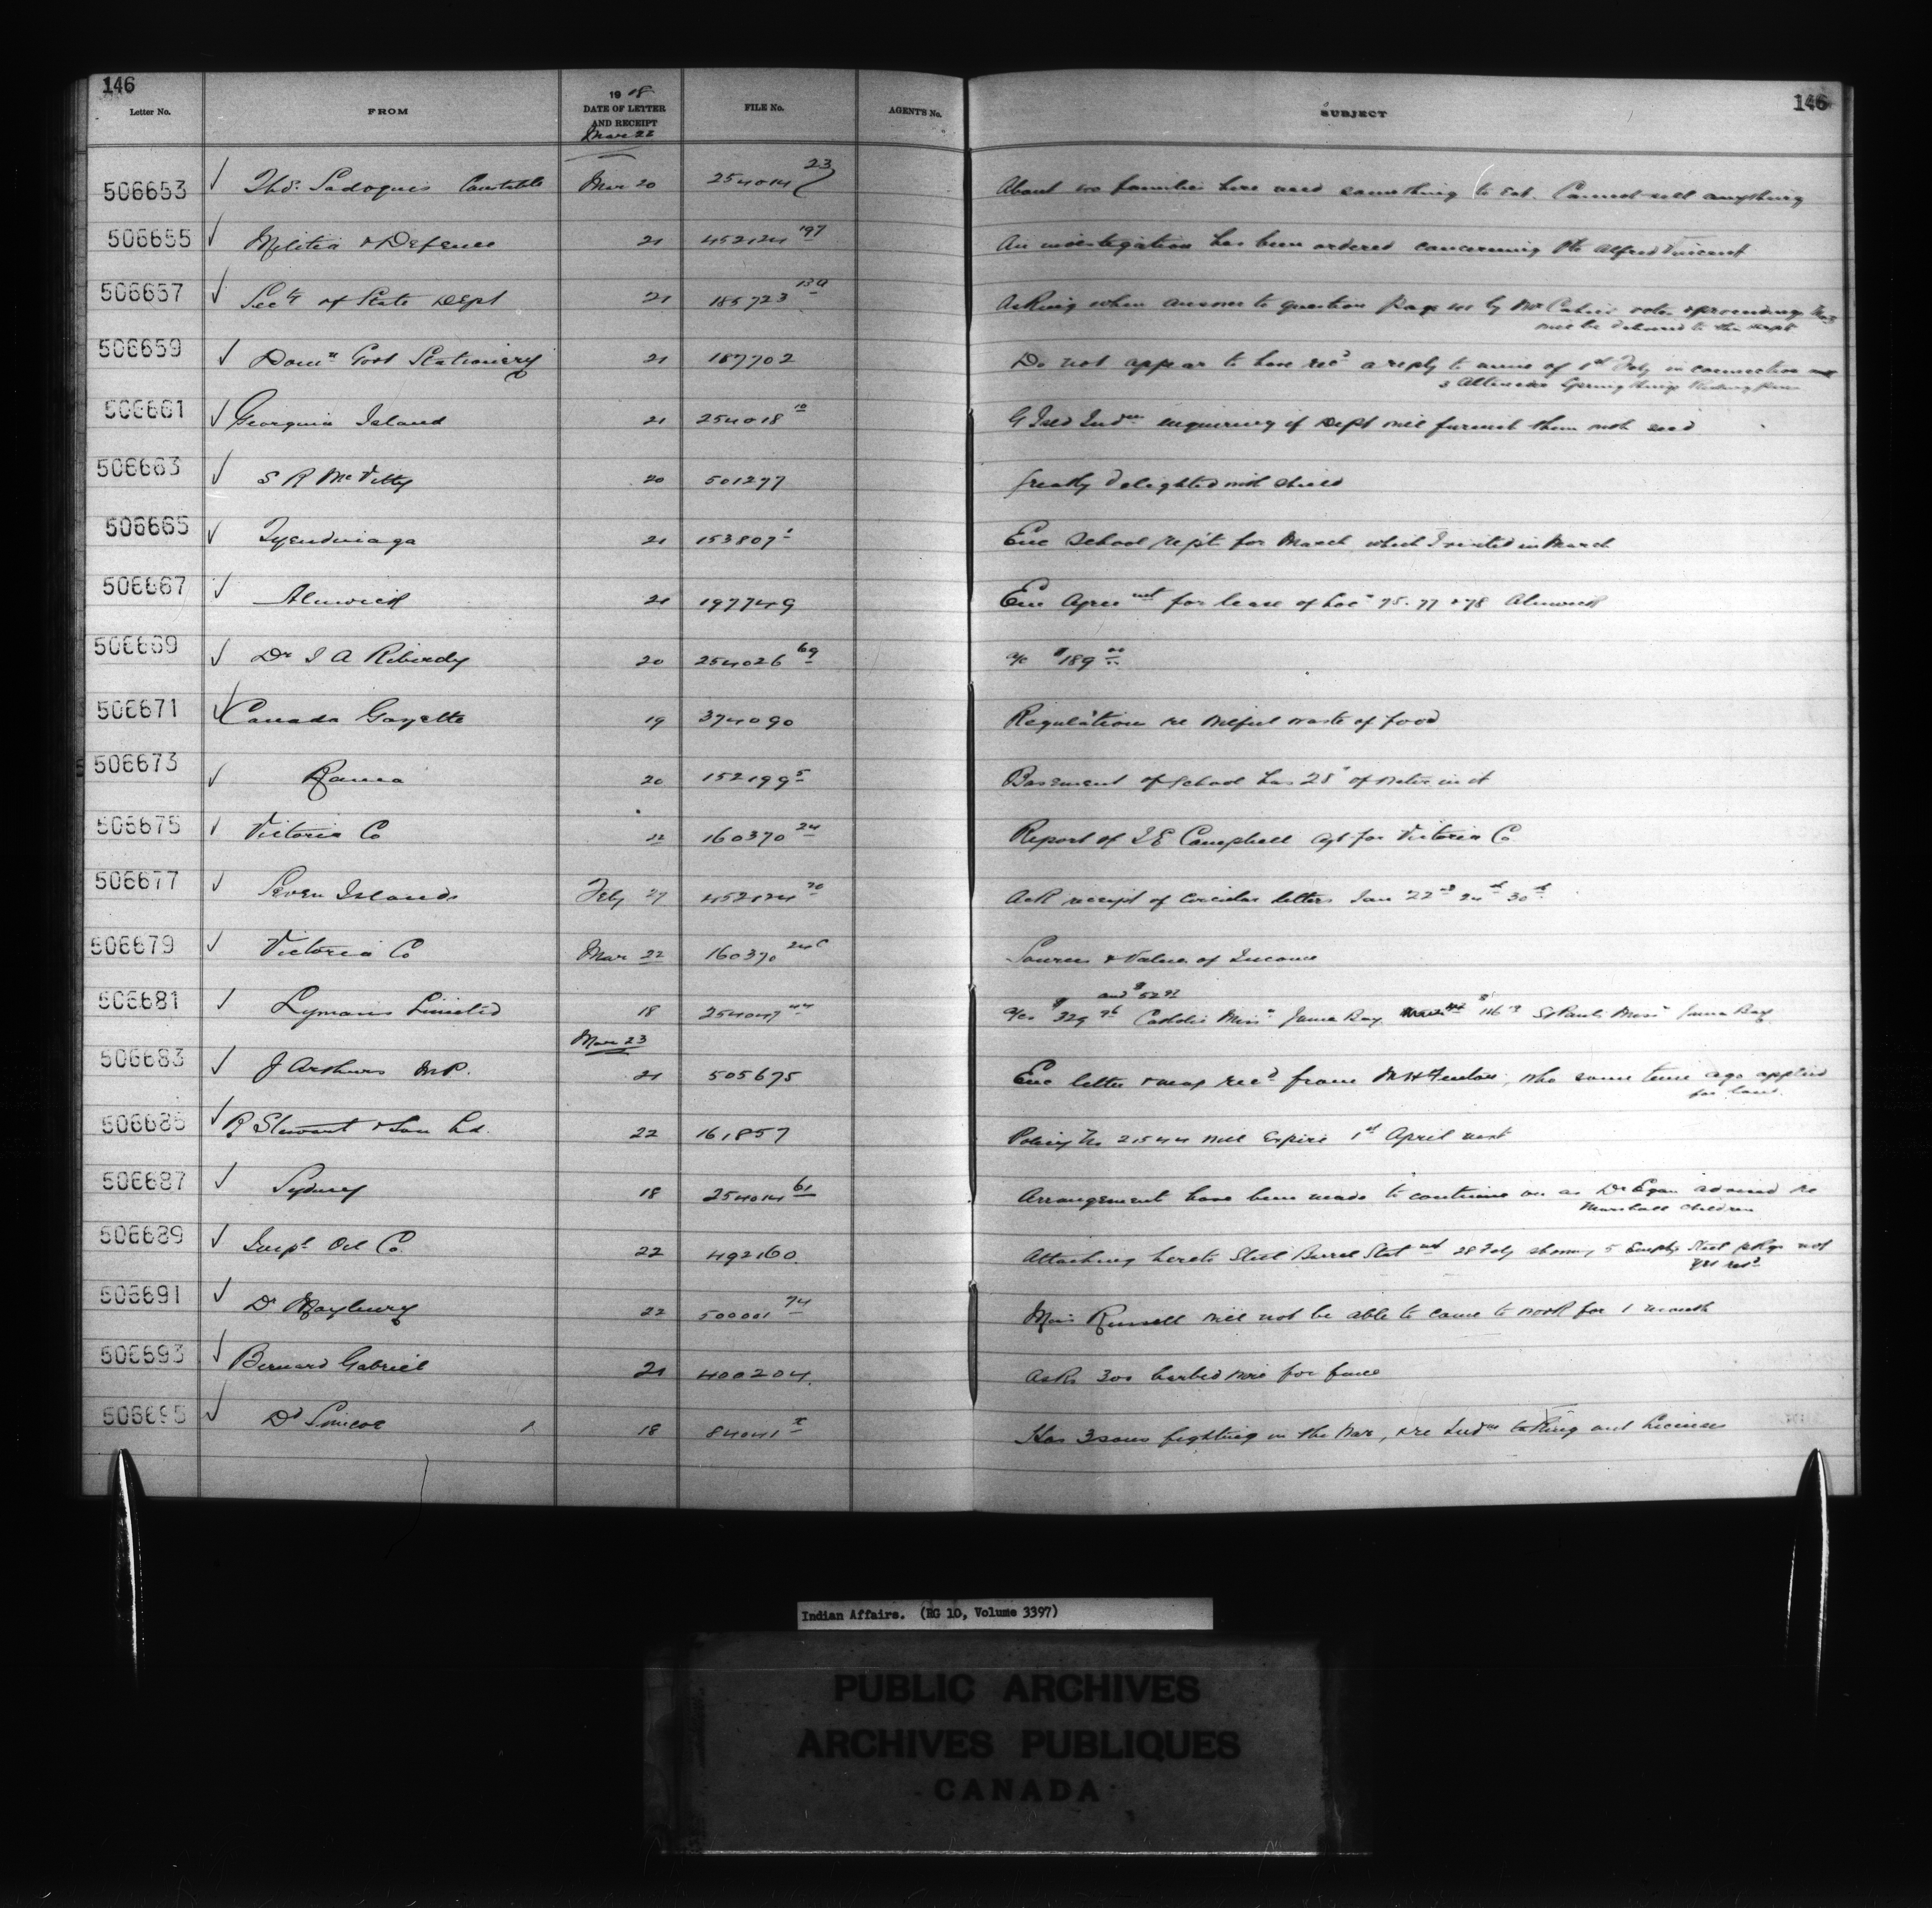 146
146
Letter No. FROM 1918 DATE OF LETTER AND RECEIPT FILE No. AGENT'S No. SUBJECT
Mar 22
506653 Thos. Sadoquis Constable Mar 20 254014 23 About 100 families here need something to eat. Cannot sell anything
506655 Militia & Defence 21 452124 197 An investigation has been ordered concerning Pte Alfred Vincent
506657 Secty of State Dept 21 185723 13A Asking when answer to question page by Mr
will be delivered to this dept
506659 Domn Govt Stationery 21 187702 Do not appear to have recd a reply to mine of 1st Feby in connection
506661 Georgina Island 21 254018 10 G Isld Indns enquiring if Dept will furnish them with seed
506663 S R McVitty 20 501277 Greatly delighted with shield
506665 Tyendinaga 21 153807 1 Enc School rept for March which I visited in March
506667 Alnwick 21 197749 Enc Agreemt for lease of Locn 75-77 & 78 Alnwick
506669 Dr J A Riberdy 20 254026 69 a/c $189 00
506671 Canada Gazette 19 374090 Regulations re wilful waste of food
506673 Rama 20 152199 5 Basement of school has 28" of water in it
506675 Victoria Co 22 160370 24 Report of J E Campbell Agt for Victoria Co
506677 Seven Islands Feby 27 452124 70 Ack receipt of Circular letters Jan 22nd 24th 30th
506679 Victoria Co Mar 22 160370 24C Source & Value of Income
and $52 97
506681 Lymans Limited 18 254047 44 a/cs $329 76 Catholic Missn James Bay $116 19 St Pauls Missn James Bay
Mar 23
506683 J Arthurs M.P. 21 505675 Enc letter & map recd from M H Fenton, who some time ago applied
for land
506685 R Stewart & Son Ld. 22 161857 Policy No 21544 will expire 1st April next
506687 Sydney 18 254014 61 Arrangement have been made to continue on as Dr Egan advised re
Marshall children
506689 Impl Oil Co. 22 492160 Attaching hereto Steel Barrel Statmt 28 Feby showing 5 Empty Steel pkgs not
yet recd
506691 Dr Maybury 22 500001 74 Miss Russell will not be able to come to work for 1 month
506693 Bernard Gabriel 21 400204 Asks 300 barbed wire for fence
506695 Dd Simcoe 18 84041 Has 3 sons fighting in the War, & re Indns taking out licenses
Indian Affairs. (RG 10, Volume 3397)
PUBLIC ARCHIVES
ARCHIVES PUBLIQUES
CANADA